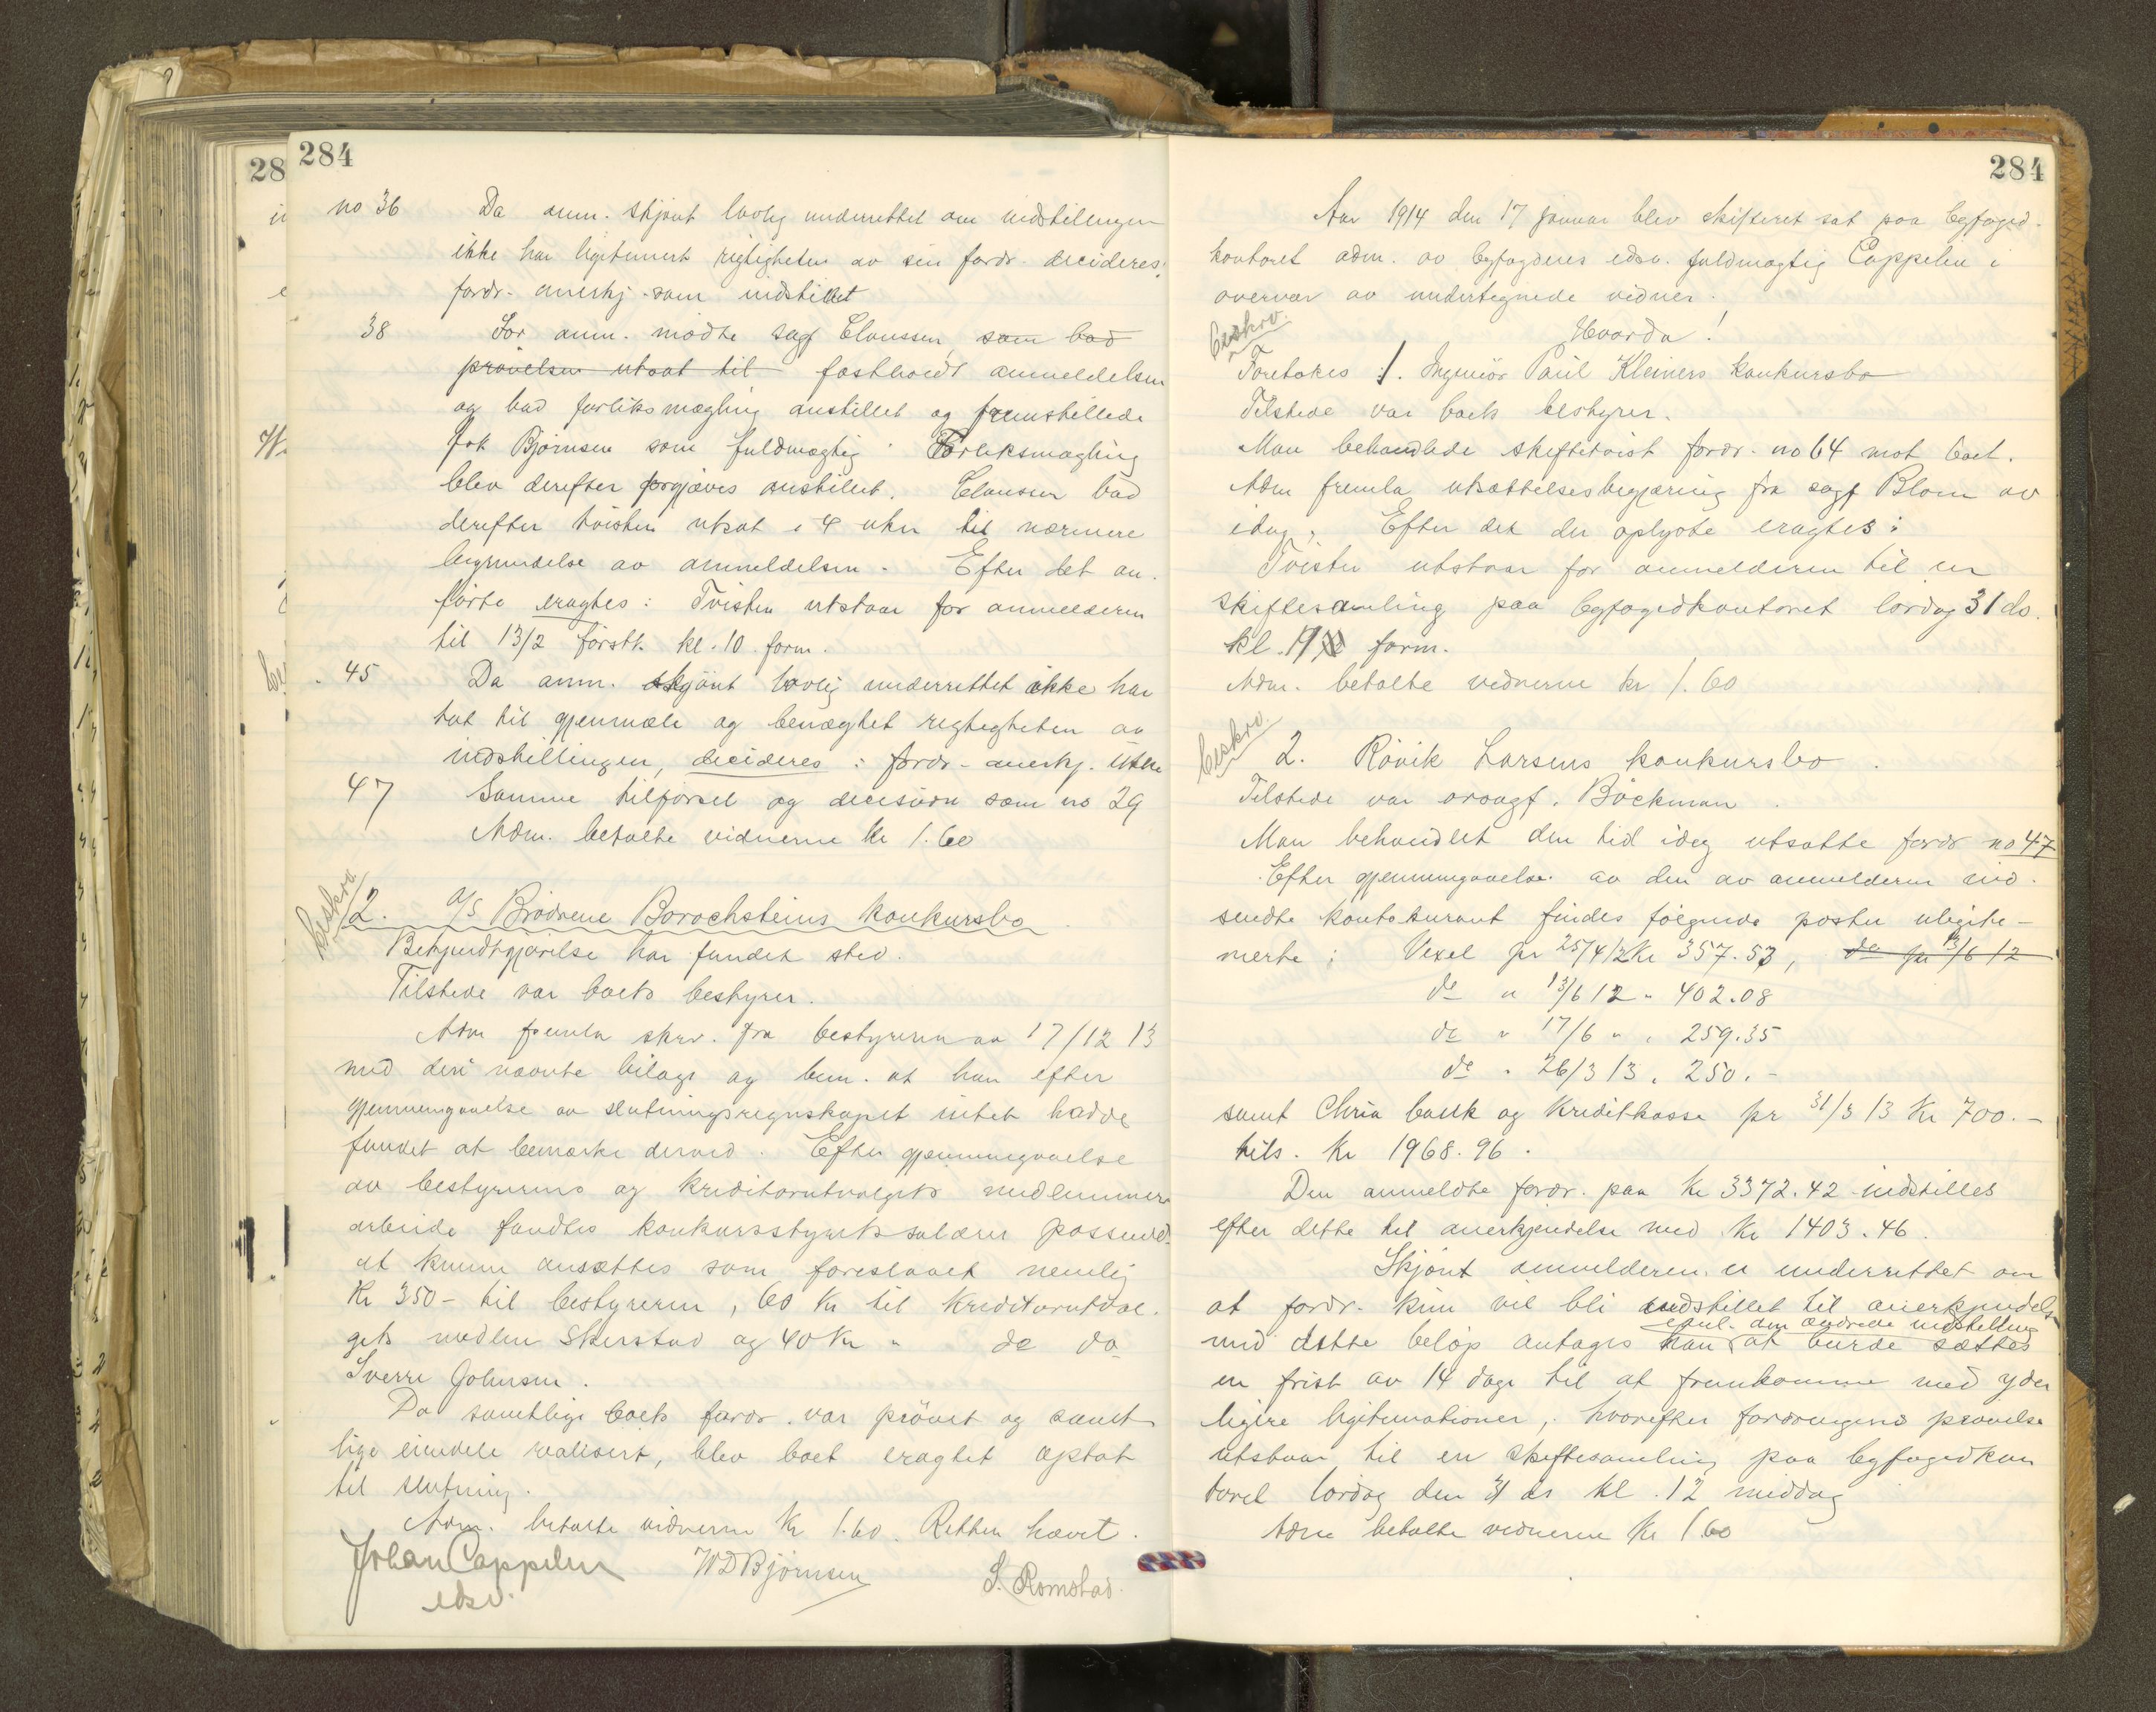 284
no 36 Da anm. skjønt lovlig underrettet om indstillingen
ikke har legitimert rigtigheten av sin fordr. decideres:
fordr. anerkj. som indstillet
38 For anm. mødte sagf Claussen, som bad
prøvelsen utsat til fastholdt anmeldelsen
og bad forliksmægling anstillet og fremstillede
Bjørnsen som fuldmægtig. Forliksmægling
blev derefter forgjæves anstillet. Claussen bad
derefter tvisten utsat i 4 uker til nærmere
begrundelse av anmeldelsen. Efter det an-
førte eragtes: Tvisten utstaar for anmelderen
til 13/2 førstk. kl. 10 form.
45 Da anm. skjønt lovlig underrettet ikke har
tat til gjenmæle og benægtet rigtigheten av
indstillingen, decideres: fordr. anerkj. ikke
47 Samme tilførsel og decision som no 29
Adm. betalte vidnerne kr 1.60
beskrv.
2. A/S Brødrene Borochsteins konkursbo
Bekjendtgjørelse har fundet sted.
Tilstede var boets bestyrer.
Adm fremla skrv. fra bestyreren av 17/12 13
med deri nævnte bilage og bem. at han efter
gjennemgaaelse av slutningsregnskapet intet hadde
fundet at bemærke derved. Efter gjennemgaaelse
av bestyrerens og kreditorutvalgets medlemmers
arbeide fandtes konkursstyrets salærer passende
at kunne ansættes som foreslaaet nemlig
Kr 350- til bestyreren, 60 Kr til kreditorutval-
gets medlem Skerstad og 40 Kr " do do
Sverre Johnsen.
Da samtlige boets fordr. var prøvet og samt-
lige eiendele realisert, blev boet eragtet optat
til slutning.
Adm. betalte vidnerne Kr 1.60. Retten hævet.
Johan Cappelen WDBjørnsen S. Romstad.
edsv.
284
Aar 1914 den 17 januar blev skifteret sat paa byfoged-
kontoret adm. av byfogdens edsv. fuldmægtig Cappelen i
overvær av undertegnede vidner.
Hvorda!
beskrv.
Foretokes 1. Ingeniør Paul Kleiners konkursbo
Tilstede var boets bestyrer.
Man behandlede skiftetvist fordr. no 64 mot boet.
Adm fremla utsættelsesbegjæring fra sagf Blom av
idag. Efter det der oplyste eragtes:
Tvisten utstaar for anmelderen til en
skiftesamling paa byfogedkontoret lørdag 31 ds.
kl. form.
Adm. betalte vidnerne kr 1.60
beskrv.
2. Røvik Larsens konkursbo.
Tilstede var orsagf. Bøckman.
Man behandlet den tid idag utsatte fordr no 47
Efter gjennemgaaelse av den av anmelderen ind-
sendte kontokurant findes følgende poster ulegiti-
merte: Vexel pr 25/4 12 Kr 357.53, do pr 13/6 12
do " 13/6 12 " 402.08
do " 17/6 " " 259.35
do " 26/3 13 " 250.-
samt Chria bank og Kreditkasse pr 31/3 13 Kr 700.-
tils. Kr 1968.96.
Den anmeldte fordr. paa Kr 3372.42 indstilles
efter dette til anerkjendelse med Kr 1403.46.
Skjønt anmelderen er underrettet om
at fordr. kun vil bli indstillet til anerkjendelse
den ændrede indstilling
med dette beløp antages han at burde sættes
en frist av 14 dage til at fremkomme med yder-
ligere legitimationer, hvorefter fordringens prøvelse
utstaar til en skiftesamling paa byfogedkon-
toret lørdag den 31 ds kl. 12 middag
Adm betalte vidnerne Kr 1.60